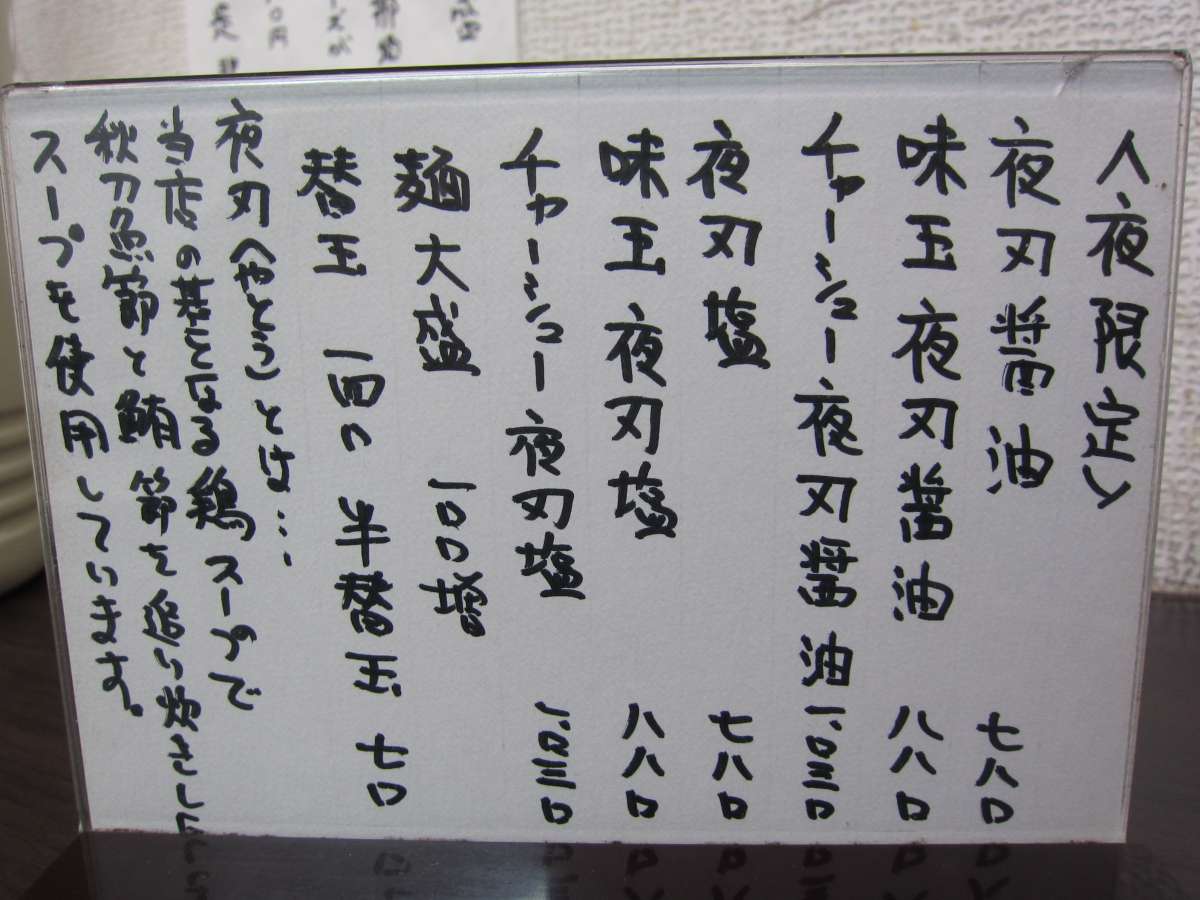 〈夜限定〉
夜刃醤油 七八〇
味玉夜刃醤油 八八〇
チャーシュー夜刃醤油 一、〇三〇
夜刃塩 七八〇
味玉夜刃塩 八八〇
チャーシュー夜刃塩 一、〇三〇
麺大盛 一〇〇増
替玉 一四〇 半替玉 七〇
夜刃(やとう)とは…
当店の基となる鶏スープで
秋刀魚節と鮪節を追い炊きした
スープを使用しています。